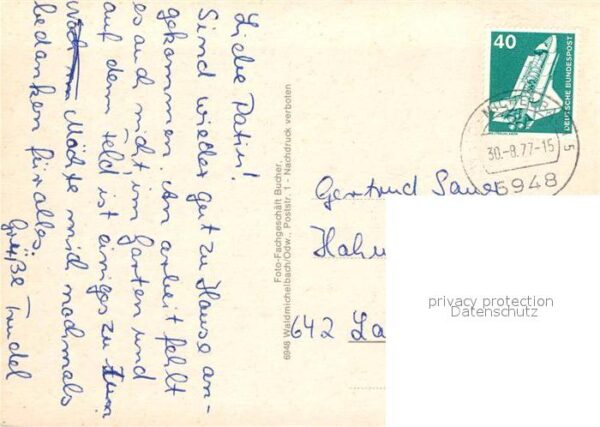 Liebe Patin!
Sind wieder gut zu Hause an-
gekommen. An arbeit fehlt
es auch nicht, im Garten und
auf dem Feld ist einiges zu tun
Möchte mich nochmals
bedanken für alles.
Grüße Trudel
Foto-Fachgeschäft Bucher,
6948 Waldmichelbach/Odw., Poststr. 1 - Nachdruck verboten
40
DEUTSCHE BUNDESPOST
30.-8.77-15
5
6948
Gertrud Sauer
Hahn
642 La
privacy protection
Datenschutz